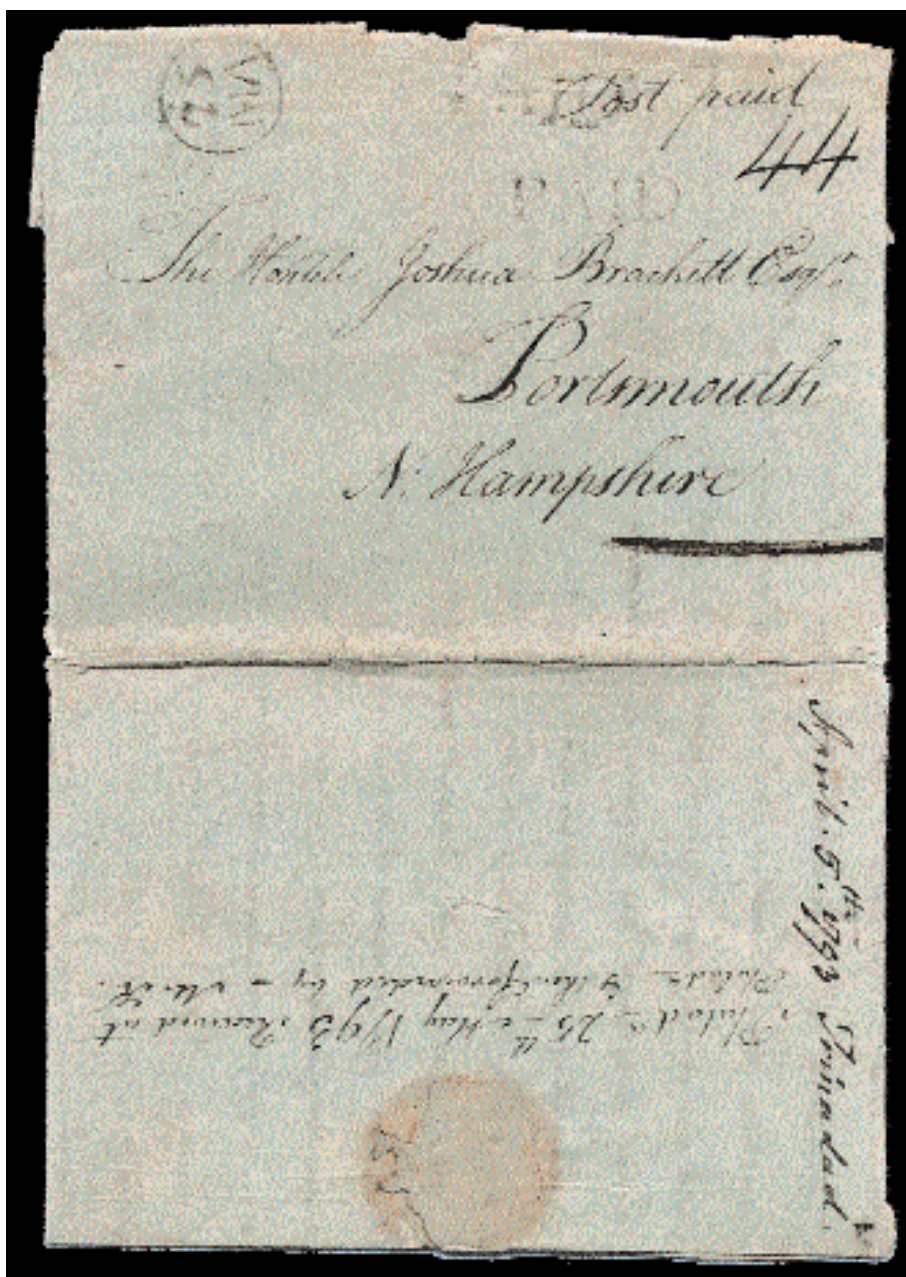 Post paid
44
PAID
The Honble. Joshua Brackett Esqr.
Portsmouth
N. Hampshire
April. 5th. 1793 Trinadad.
Philada. 25th May 1793 Received at
Philada. & forwarded by